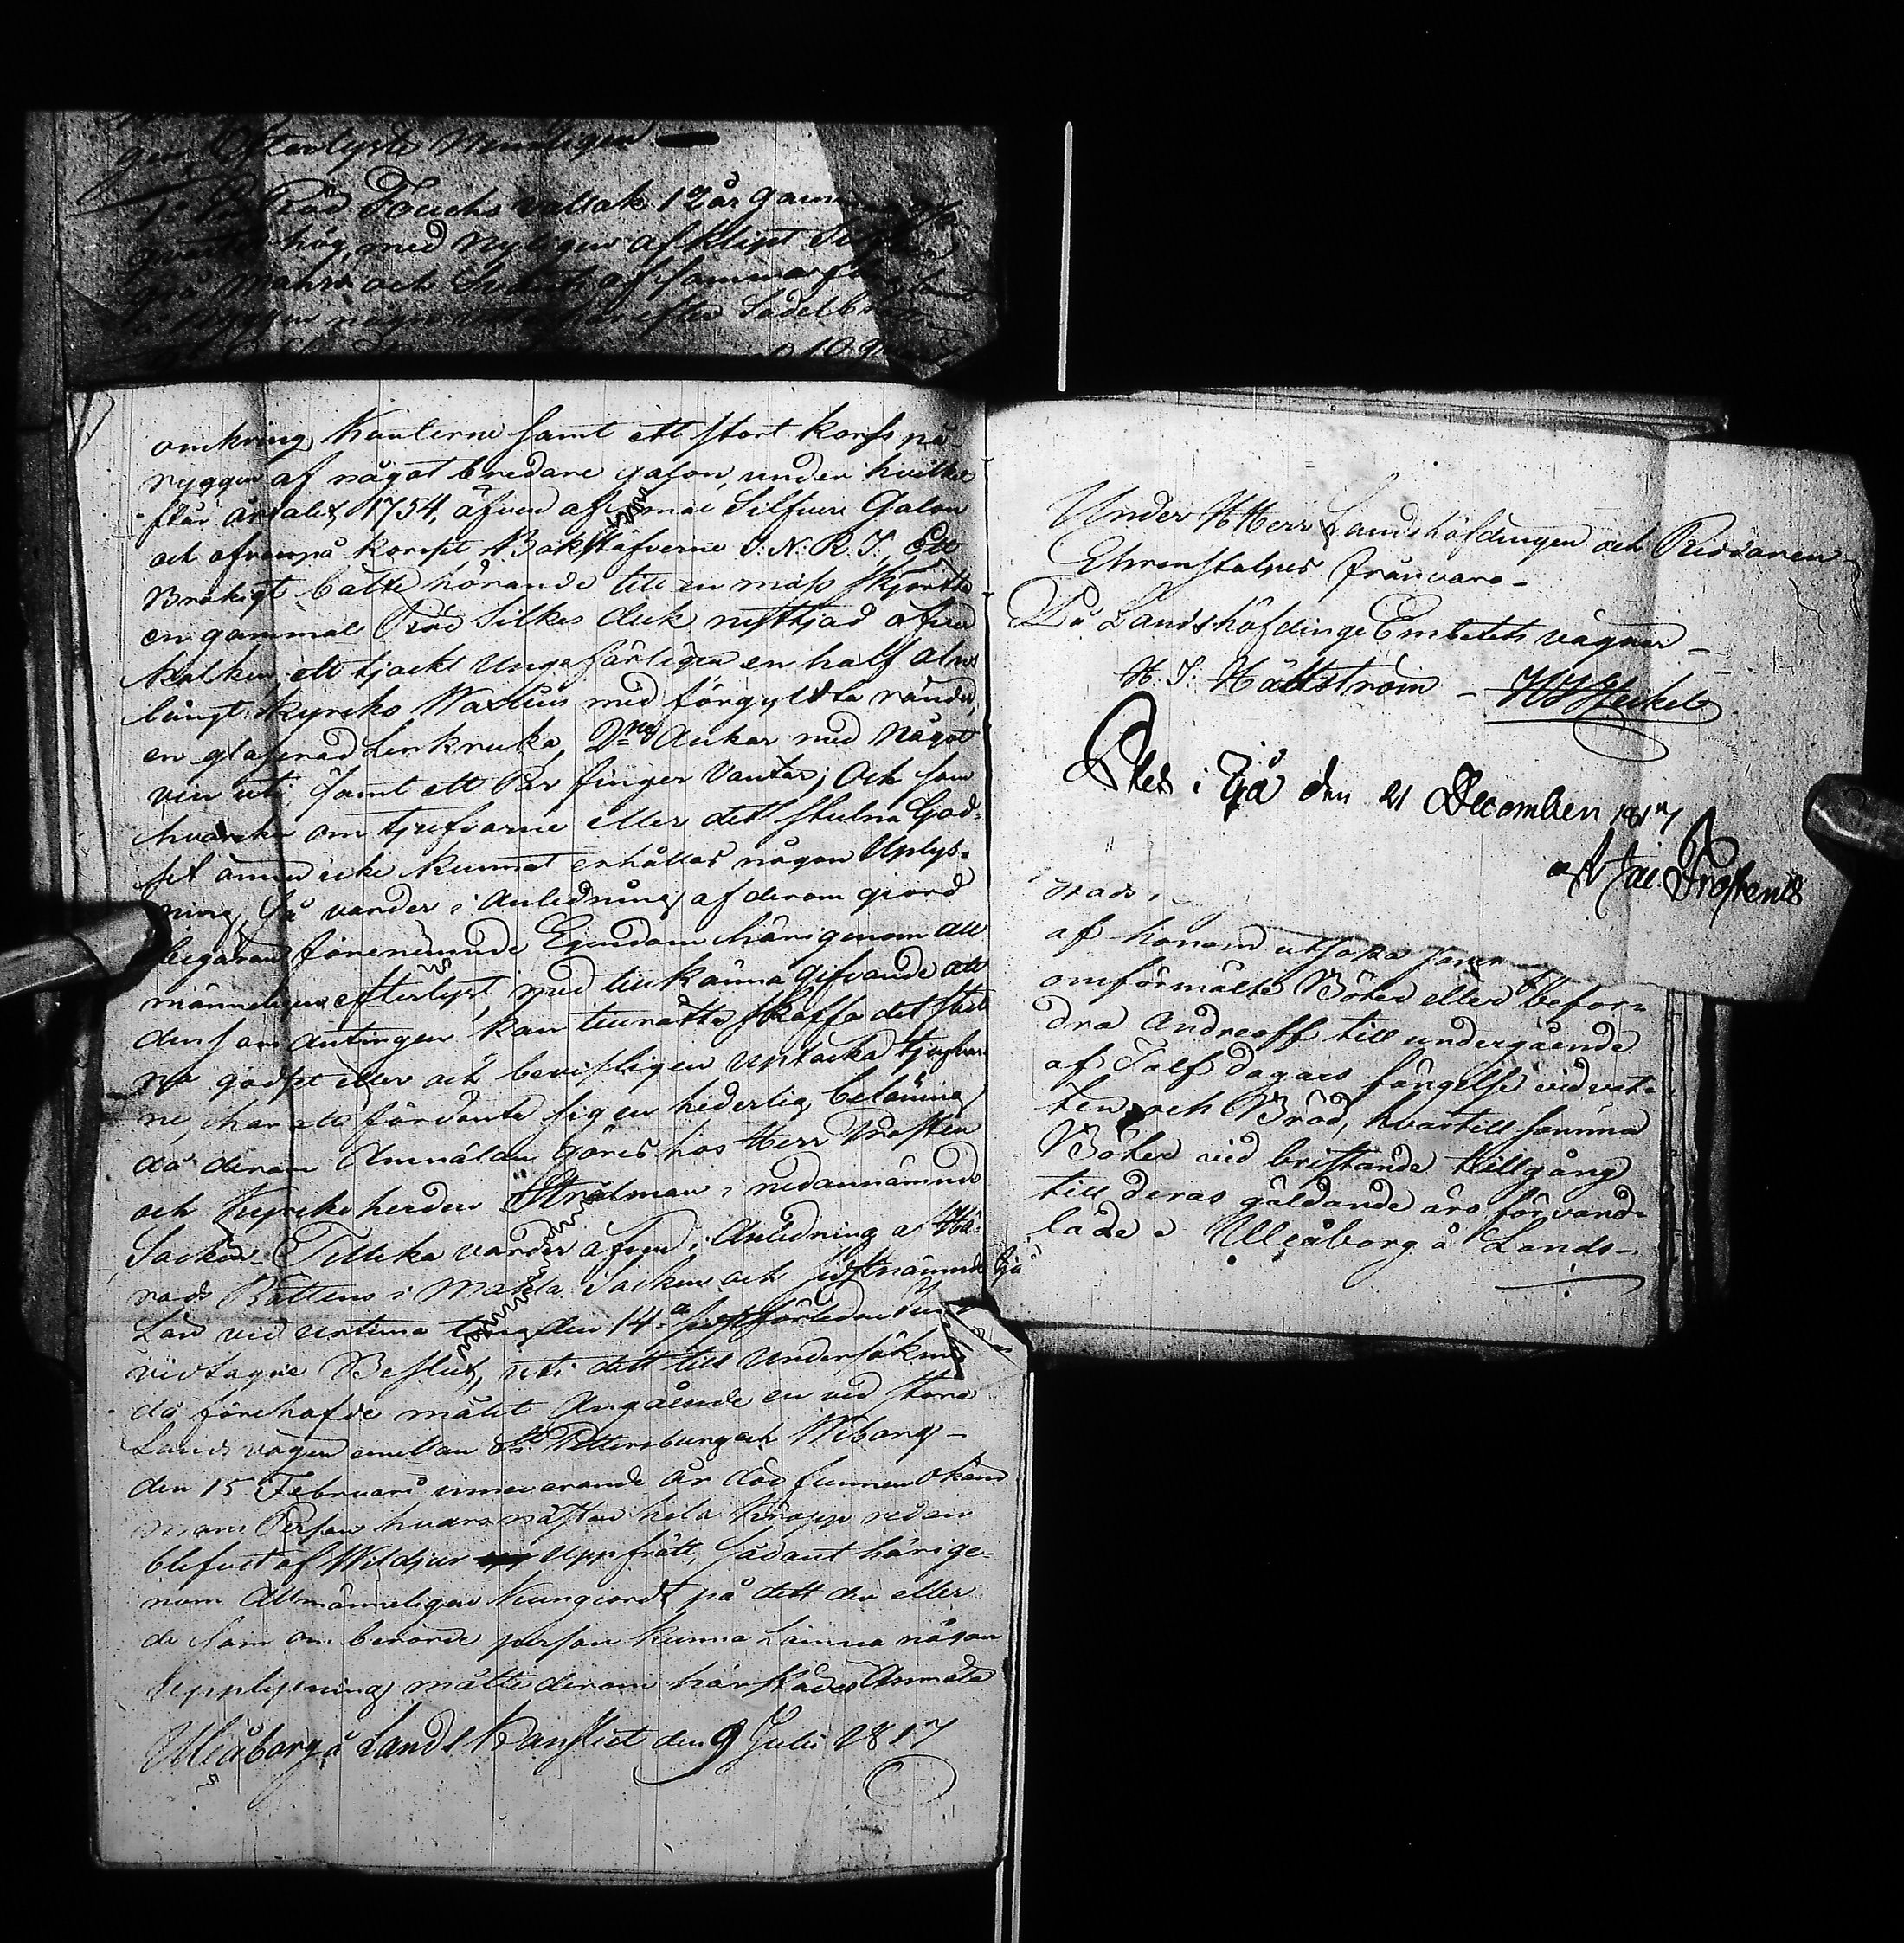 gen Efterlyste Nemligen
1o En Röd Fuchs vallak 12 år gammal
qvarter hög, med nyligen afklipt
grå Mahn och af samma
på Ryggen några efter Sadelbrott
10 qvart
omkring Kanterne samt ett stort korss på
ryggen af något bredare galon, under hvilket
står årtalet 1754, äfven af smal Silfver Galon
och ofvanpå korset Bokstäfverne I: N: R: I: Ett
Brokigt bälte hörande till en mäss skjorta
en gammal Röd Silkes duk nyttjad öfver
kalken, ett tjockt Ungefärligen en half aln
långt kyrcko Waxlius med förgyldta ränder,
en glaserad Lerkruka, Ankar med Något
vin uti samt ett Par finger Vantar; Och som
hvarken om tjufvarne eller dett stulna God-
set ännu icke kunnat erhållas någon Uplys-
ning, så varder i Anledning af derom giord
begäran förenemnde Egendom härigenom all
männeligen efterlyst, med tillkänna gifvande att
den som Antingen kan tillrätta skaffa det stul
na godset eller och bevisligen uptäcka tjufvar
ne, har att förvänta sig en hederlig belöning
då derom Anmälan göres hos Herr Prosten
och Kyrkoherden Strålman i nedannämnde
Socken. Tillika varder äfven i Anledning af Hä-
rads Rättens i Mohla Socken och sidstnämnde
Län vid Urtima ting den 14de sistförledne Junii
vidtagne Beslut, uti dett till Undersökning
då förehafde målet Angående en vid stora
Landsvägen emellan St Pettersburg och Wiborg
den 15 Februarii innevarande år död funnen Okänd
mans Person hvars nästan hela kropp redan
blifvit af Wildjur uppfrätt, sådant härige-
nom Allmänneligen Kungiordt på dett den eller
de som om berörde person kunna Lämna någon
Upplysning måtte derom härstädes Anmäla
Uleåborg å Lands Kansliet den 9 Julii 1817
Under HHerr Landshöfdingen och Riddaren
Ehrenstolpes frånvaro
På Landshöfdinge Embetets vägnar
H. J. Hällström HHeickel
Upläst i Ijå den 21 December 1817
af
drads,
af honom utsöka
omförmälte Böter eller befor-
dra Andreoff till undergående
af Tolf dagars fängelse vid vat-
ten och Bröd, hvartill samma
Böter vid bristande tillgång
till deras gäldande äro förvand-
lade. Uleåborg å Lands-